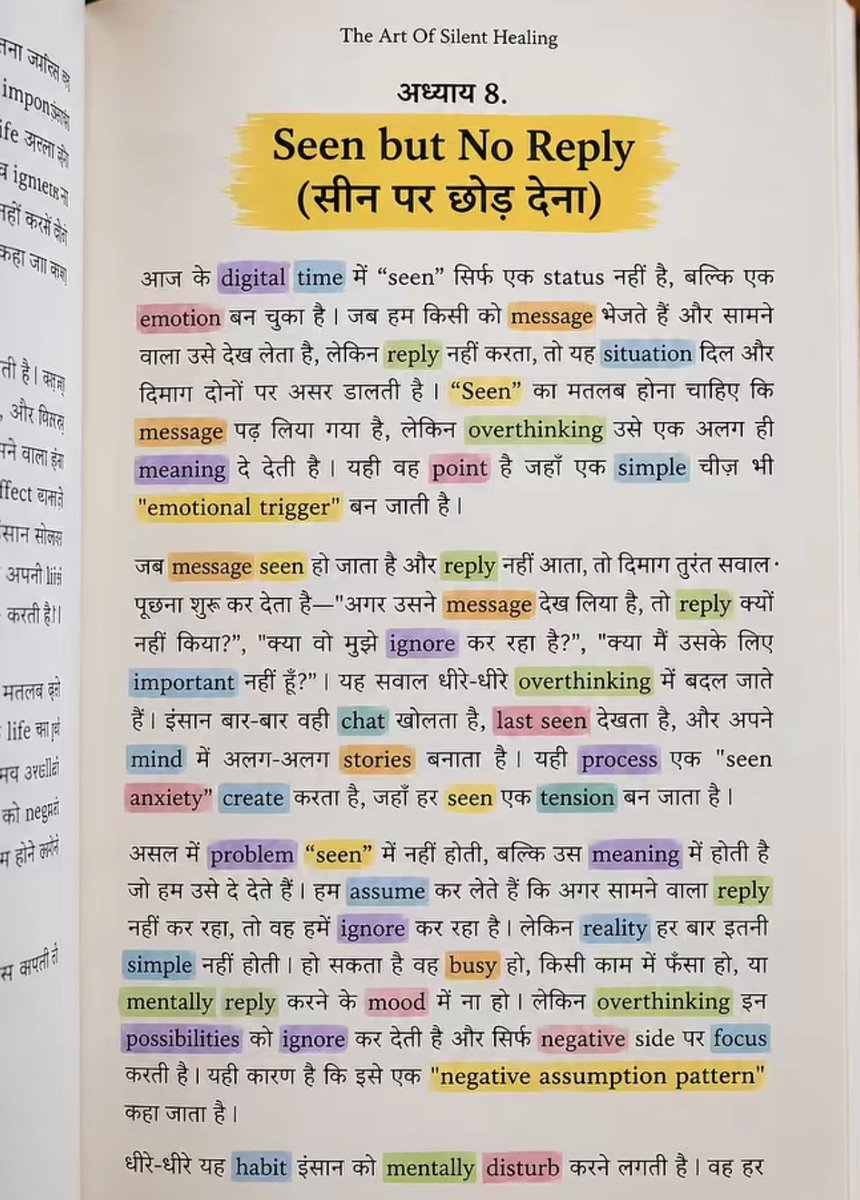 The Art Of Silent Healing
अध्याय 8.
Seen but No Reply
(सीन पर छोड़ देना)
आज के digital time में “seen” सिर्फ एक status नहीं है, बल्कि एक
emotion बन चुका है। जब हम किसी को message भेजते हैं और सामने
वाला उसे देख लेता है, लेकिन reply नहीं करता, तो यह situation दिल और
दिमाग दोनों पर असर डालती है। “Seen” का मतलब होना चाहिए कि
message पढ़ लिया गया है, लेकिन overthinking उसे एक अलग ही
meaning दे देती है। यही वह point है जहाँ एक simple चीज़ भी
"emotional trigger" बन जाती है।
जब message seen हो जाता है और reply नहीं आता, तो दिमाग तुरंत सवाल
पूछना शुरू कर देता है—"अगर उसने message देख लिया है, तो reply क्यों
नहीं किया?”, "क्या वो मुझे ignore कर रहा है?”, "क्या मैं उसके लिए
important नहीं हूँ?”। यह सवाल धीरे-धीरे overthinking में बदल जाते
हैं। इंसान बार-बार वही chat खोलता है, last seen देखता है, और अपने
mind में अलग-अलग stories बनाता है। यही process एक "seen
anxiety” create करता है, जहाँ हर seen एक tension बन जाता है।
असल में problem “seen” में नहीं होती, बल्कि उस meaning में होती है
जो हम उसे दे देते हैं। हम assume कर लेते हैं कि अगर सामने वाला reply
नहीं कर रहा, तो वह हमें ignore कर रहा है। लेकिन reality हर बार इतनी
simple नहीं होती। हो सकता है वह busy हो, किसी काम में फँसा हो, या
mentally reply करने के mood में ना हो। लेकिन overthinking इन
possibilities को ignore कर देती है और सिर्फ negative side पर focus
करती है। यही कारण है कि इसे एक "negative assumption pattern"
कहा जाता है।
धीरे-धीरे यह habit इंसान को mentally disturb करने लगती है। वह हर